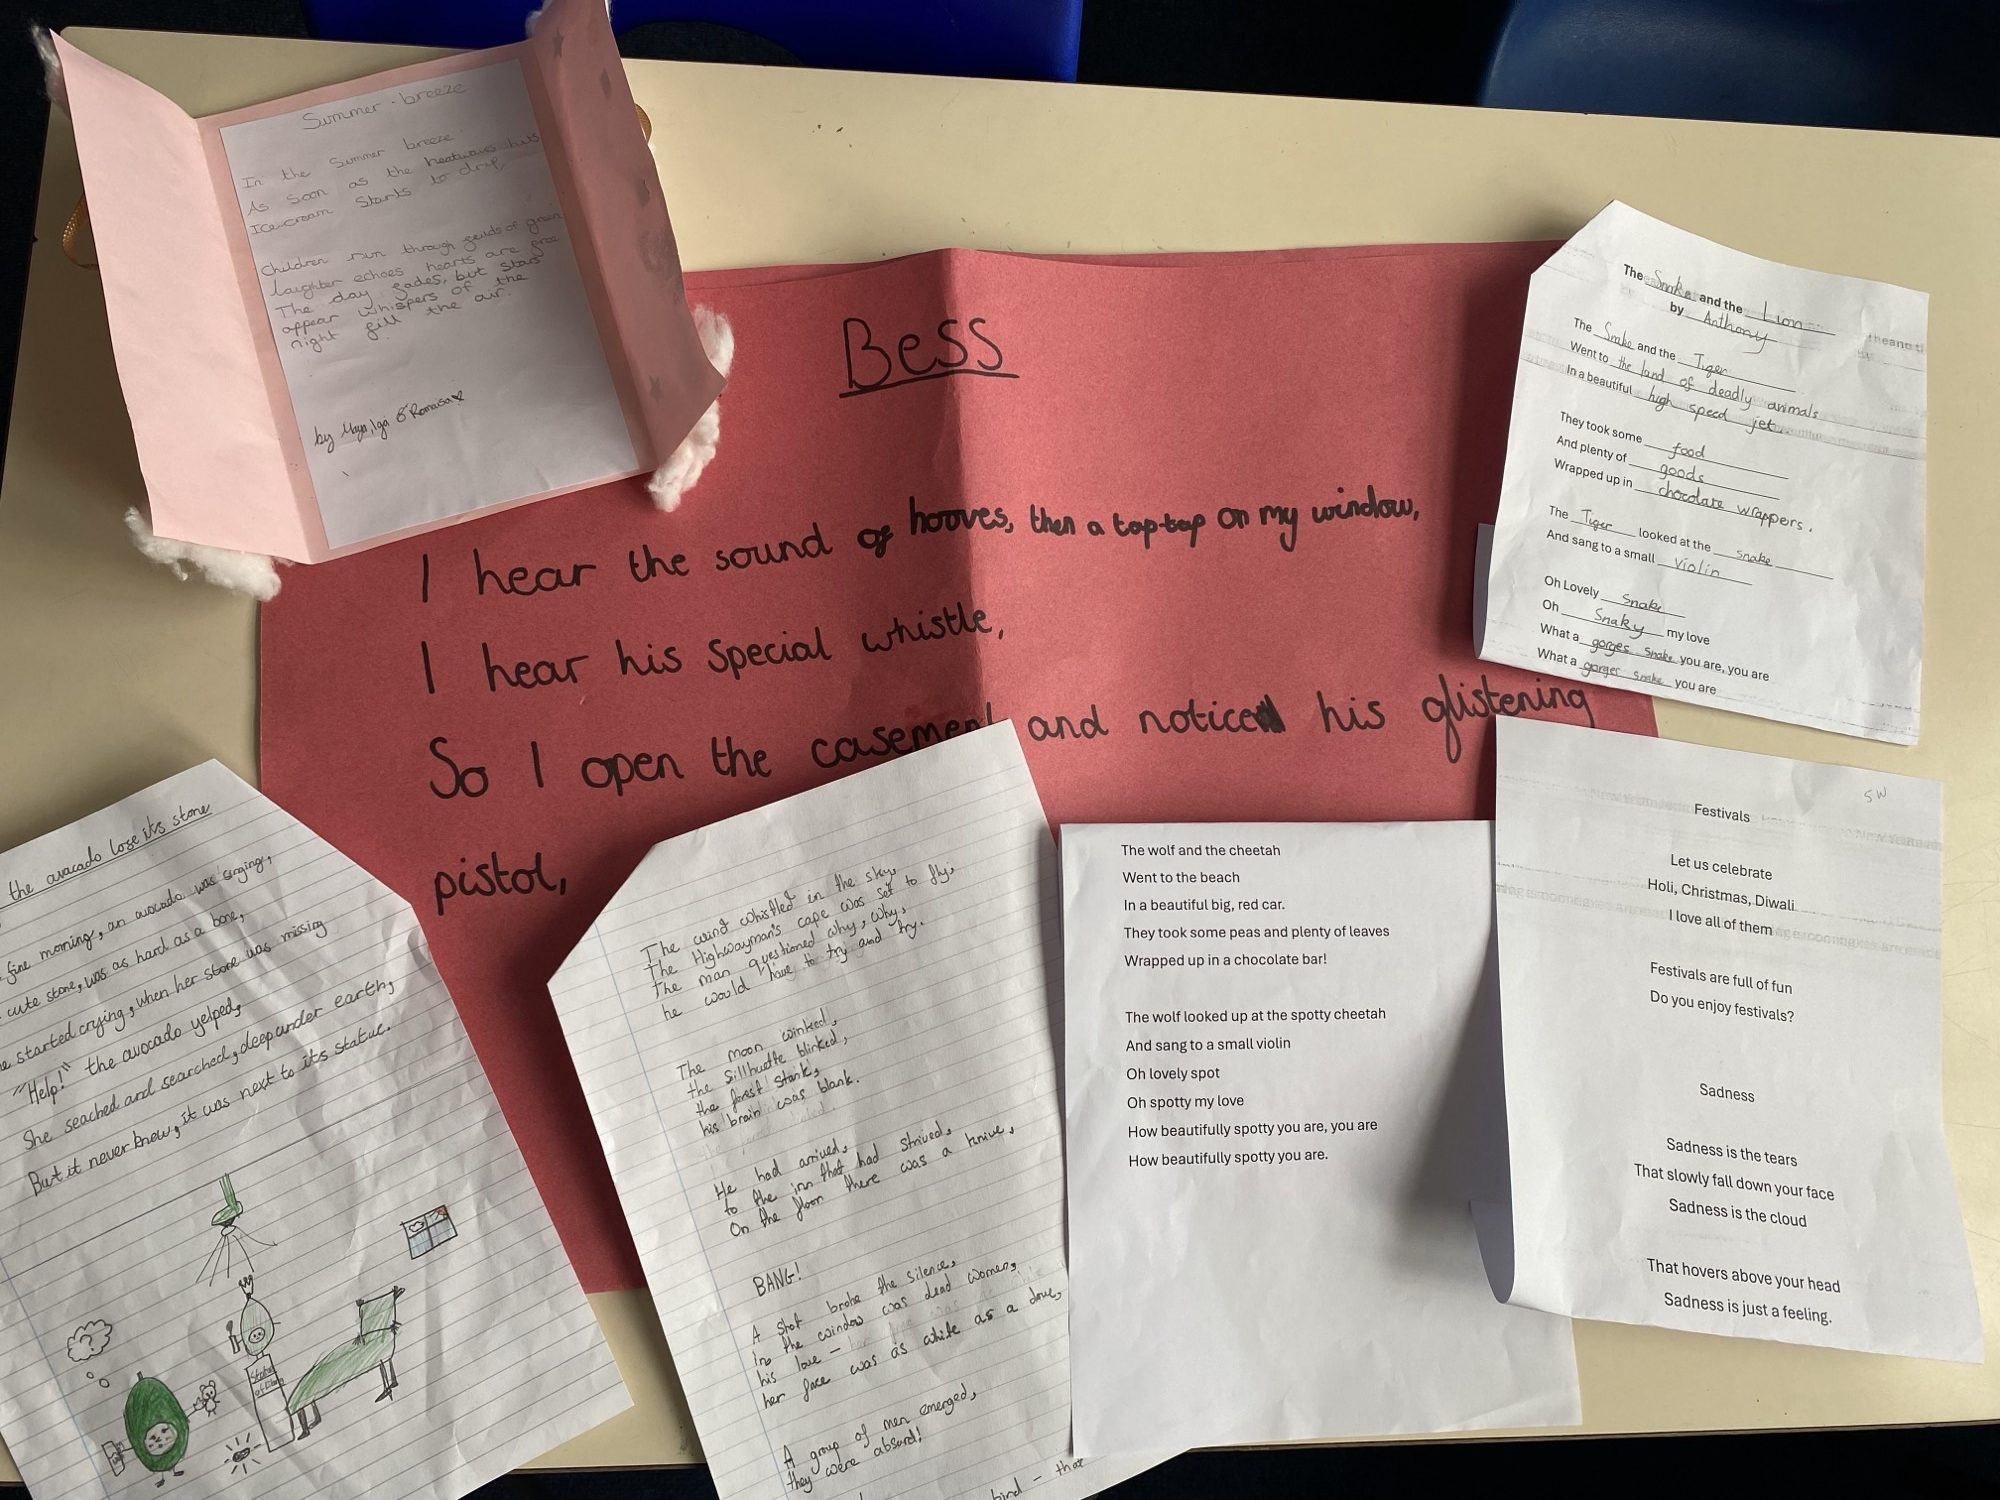 Summer breeze
In the Summer breeze
As soon as the heatwaves hits
Ice-cream starts to drip,
Children run through geilds of green
laughter echoes hearts are gree
The day gades, but stars
appear whispers of the
night fill the air.
by Maya, Iga & Romaisa
Bess
I hear the sound of hooves, then a tap-tap on my window,
I hear his special whistle,
So I open the casement and notice his glistening
pistol,
The Snake and the Lion
by Anthony
The Snake and the Tiger
Went to the land of deadly animals
In a beautiful high speed jet.
They took some food
And plenty of goods
Wrapped up in chocolate wrappers.
The Tiger looked at the snake
And sang to a small violin
Oh Lovely snake
Oh Snaky my love
What a gorges snake you are, you are
What a gorger snake you are
the avacado lose its stone
fine morning, an avocado was singing,
cute stone, was as hard as a bone,
she started crying, when her stone was missing
"Help!" the avocado yelped,
She seached and searched, deep under earth,
But it never knew, it was next to its statue.
?
Statue
The wind whistled in the sky,
The Highwayman's cape was set to fly,
The man questioned why, why,
he would have to try and try.
The moon winked,
the sillhuette blinked,
the forest stank,
his brain was blank.
He had arrived,
to the inn that had strived,
On the floor there was a knive,
BANG!
A shot broke the silence,
In the window was dead women,
his love –
her face was as white as a dove,
A group of men emerged,
they were absurd!
bind – that
The wolf and the cheetah
Went to the beach
In a beautiful big, red car.
They took some peas and plenty of leaves
Wrapped up in a chocolate bar!
The wolf looked up at the spotty cheetah
And sang to a small violin
Oh lovely spot
Oh spotty my love
How beautifully spotty you are, you are
How beautifully spotty you are.
SW
Festivals
Let us celebrate
Holi, Christmas, Diwali
I love all of them
Festivals are full of fun
Do you enjoy festivals?
Sadness
Sadness is the tears
That slowly fall down your face
Sadness is the cloud
That hovers above your head
Sadness is just a feeling.